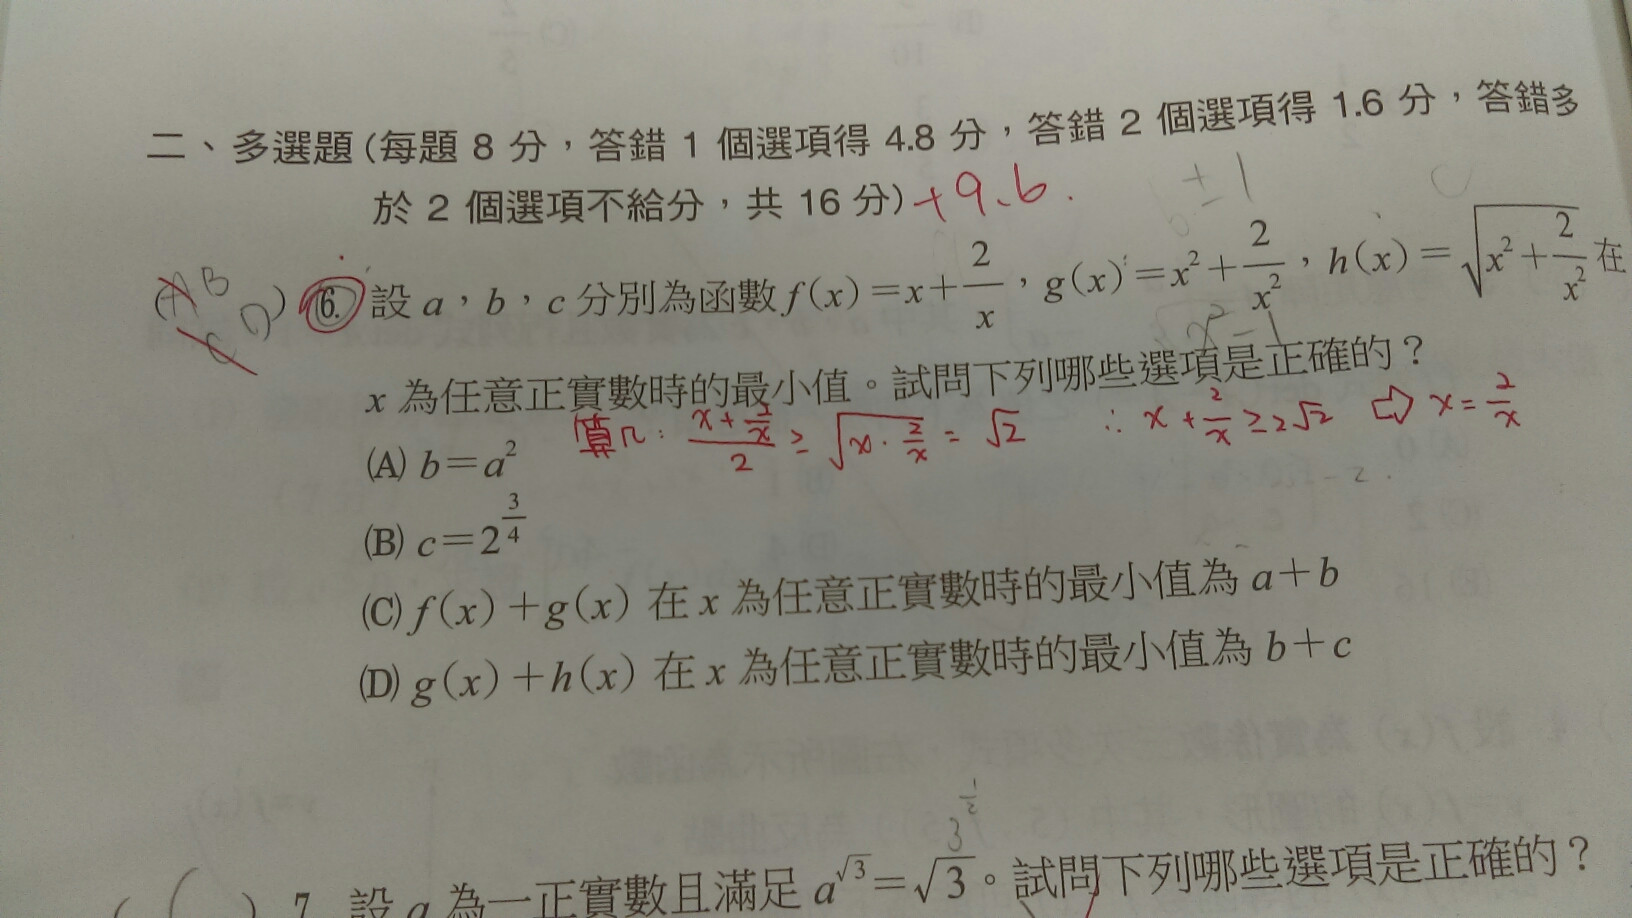 二、多選題(每題 8 分，答錯 1 個選項得 4.8 分，答錯 2 個選項得 1.6 分，答錯多
於 2 個選項不給分，共 16 分) +9.6.
±1
(AB
CD) 6. 設 a，b，c 分別為函數 f(x)=x+2/x，g(x)=x²+2/x²，h(x)=√(x²+2/x²) 在
x 為任意正實數時的最小值。試問下列哪些選項是正確的？
(A) b=a²
算几: (x+2/x)/2 ≥ √(x·2/x) = √2 ∴ x+2/x ≥ 2√2 ⇨ x=2/x
(B) c=2^(3/4)
(C) f(x)+g(x) 在 x 為任意正實數時的最小值為 a+b
(D) g(x)+h(x) 在 x 為任意正實數時的最小值為 b+c
3^(1/2)
( ) 7. 設 a 為一正實數且滿足 a^√3=√3。試問下列哪些選項是正確的？